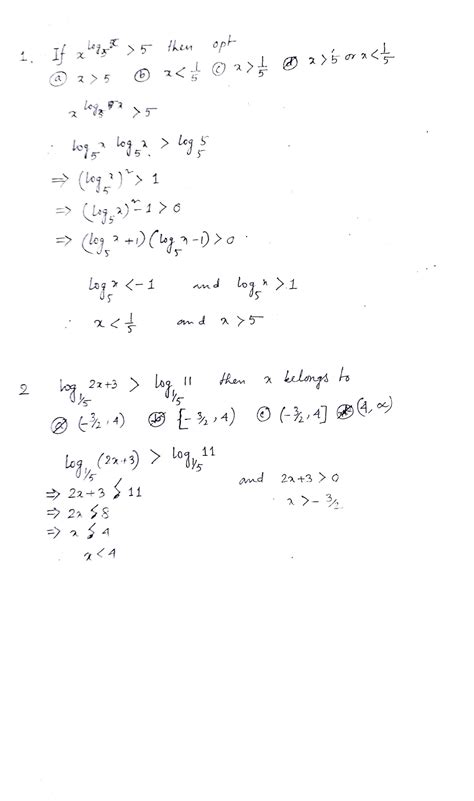 1. If x^(log_5 x) > 5 then opt
(a) x > 5 (b) x < 1/5 (c) x > 1/5 (d) x > 5 or x < 1/5
x^(log_5 x) > 5
∴ log_5 x log_5 x > log_5 5
⇒ (log_5 x)² > 1
⇒ (log_5 x)² - 1 > 0
⇒ (log_5 x + 1) (log_5 x - 1) > 0
log_5 x < -1 and log_5 x > 1
∴ x < 1/5 and x > 5
2 log_1/5 2x+3 > log_1/5 11 then x belongs to
(a) (-3/2, 4) (b) [-3/2, 4) (c) (-3/2, 4] (d) (4, ∞)
log_1/5 (2x+3) > log_1/5 11
and 2x+3 > 0
⇒ 2x+3 < 11
∴ x > -3/2
⇒ 2x < 8
⇒ x < 4
∴ x < 4